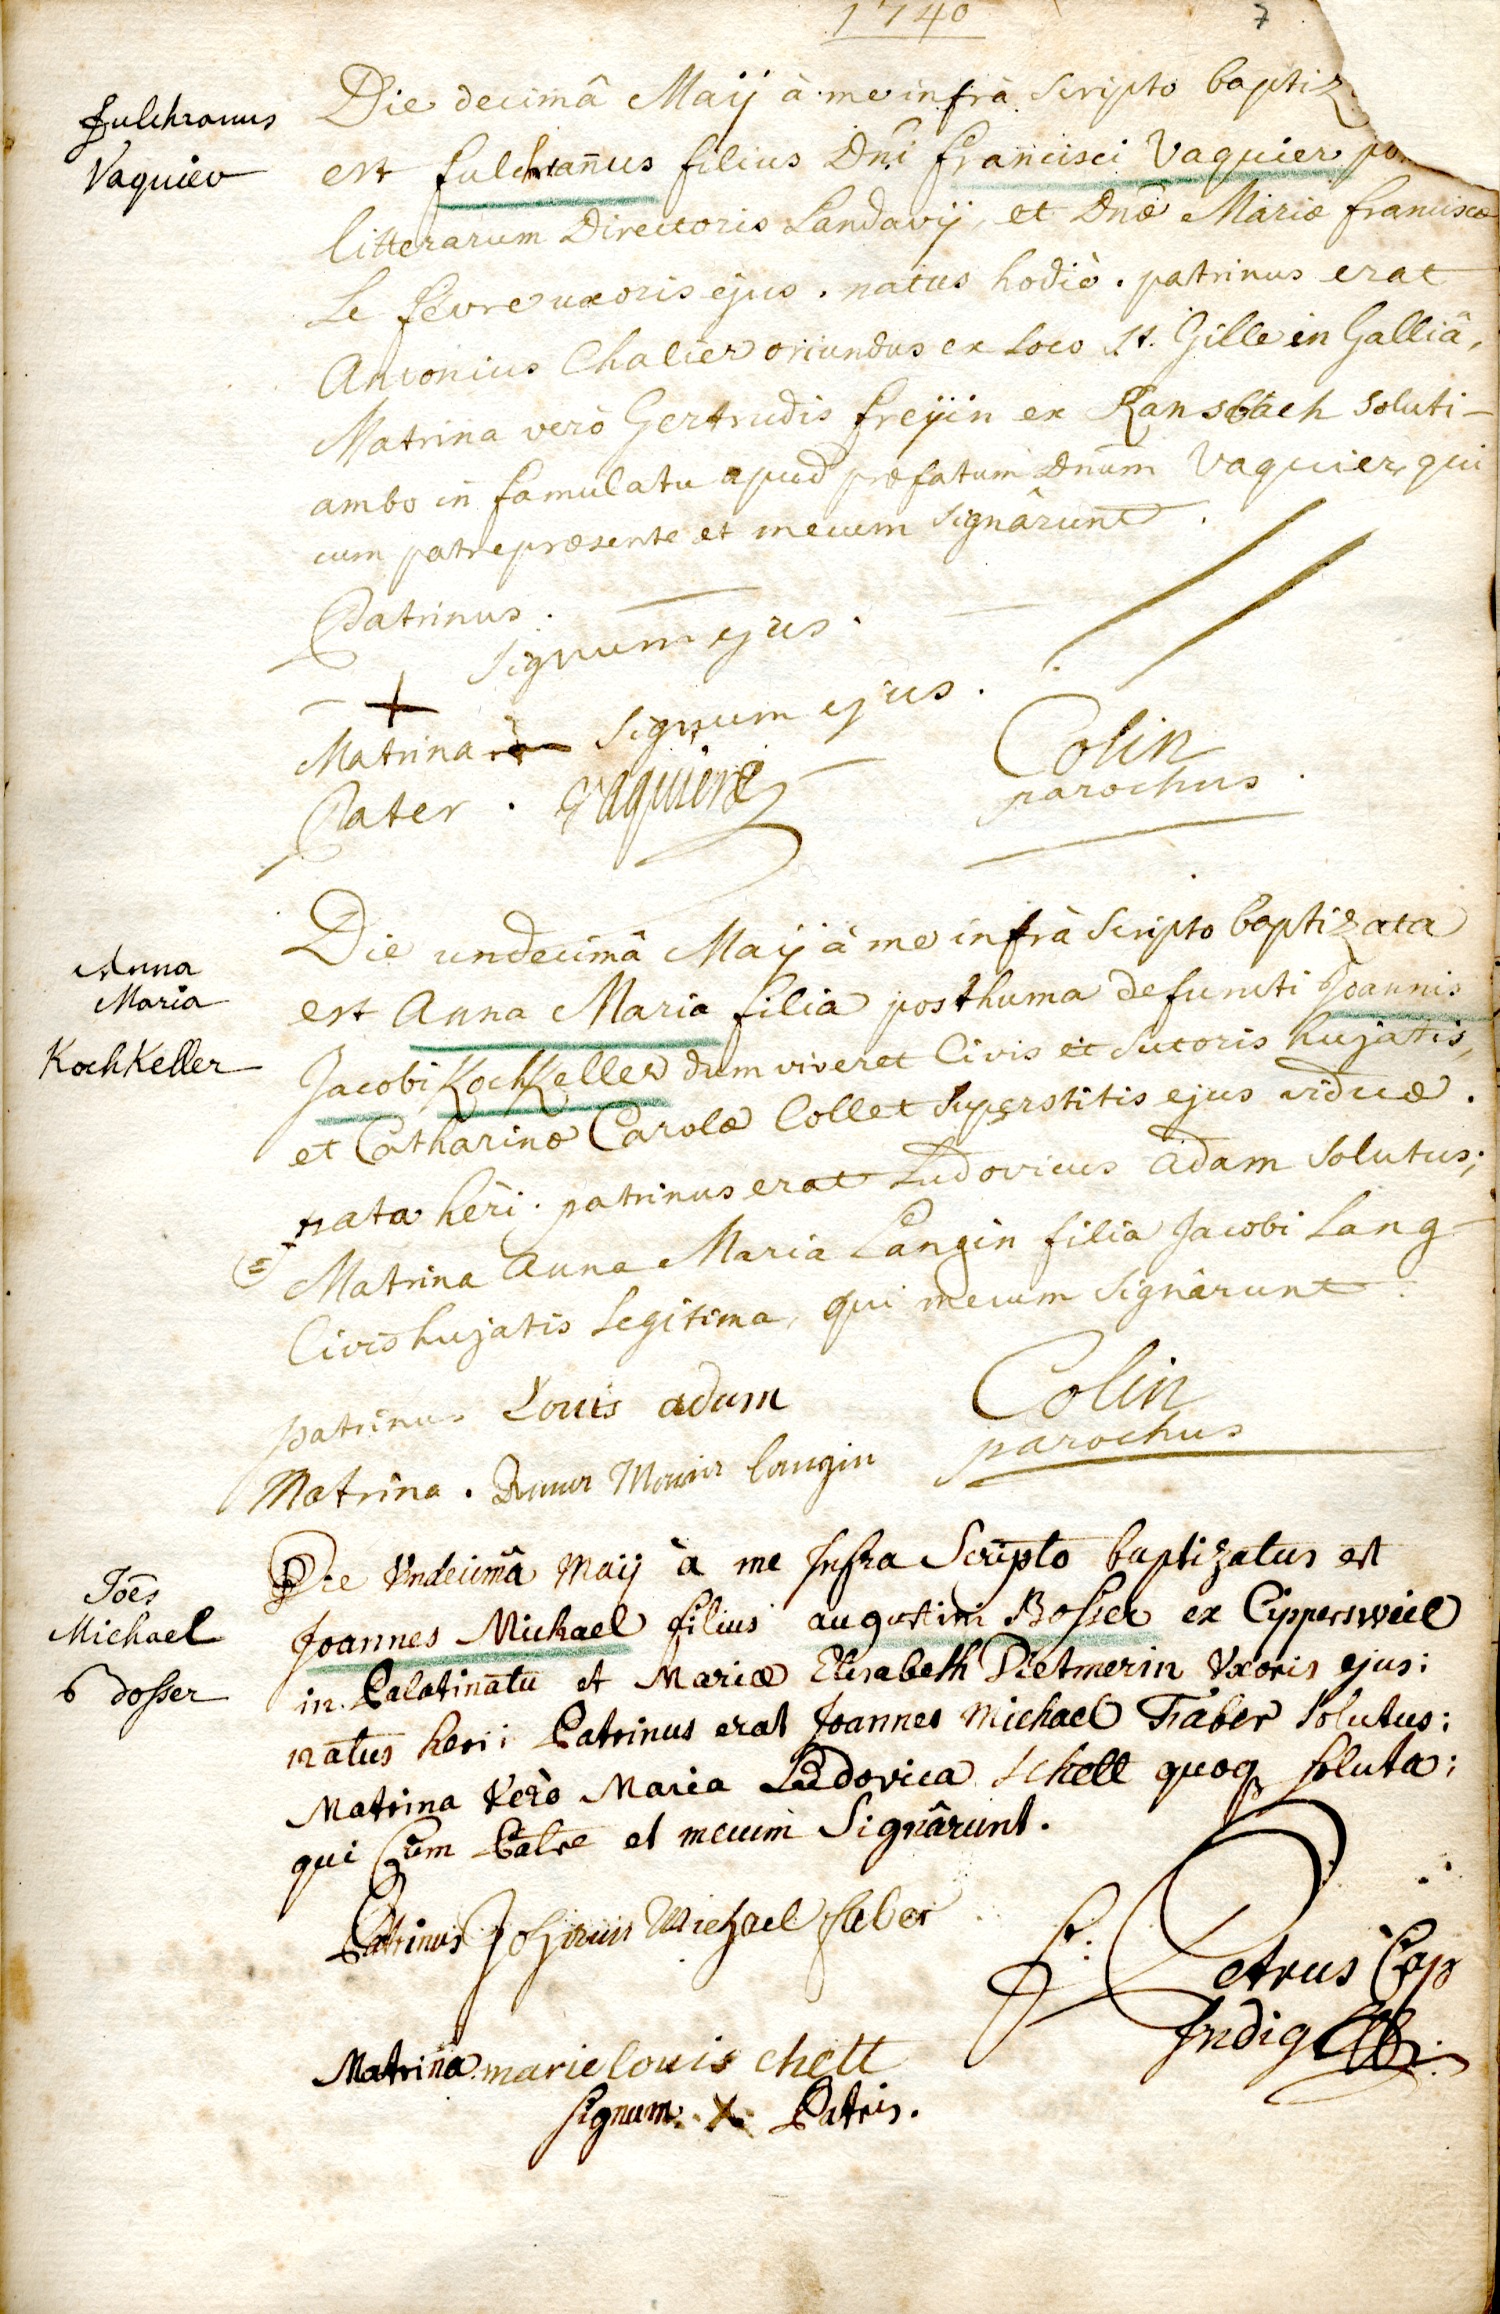 1740
7
Fulchranus
Vaquier
Die decimâ Maij à me infrà scripto baptiz
est fulchrañus filius Dni francisci Vaquier
litterarum Directoris Landavij, et Dnæ Mariæ franciscæ
Le fevre uxoris ejus. natus hodiè. patrinus erat
Antonius Chalier oriundus ex Loco St. Gille in Galliâ,
Matrina verò Gertrudis freÿin ex Ransbach soluti
ambo in famulatu apud præfatum Dnum Vaquier, qui
cum patre præsente et mecum signârunt.
Patrinus. signum ejus.
Matrina + signum ejus.
Pater. Vaquier
Colin
parochus.
Anna
Maria
KochKeller
Die undecimâ Maij à me infrà scripto baptizata
est Anna Maria filia posthuma defuncti Joannis
Jacobi KochKeller dum viveret Civis et sutoris hujatis,
et Catharinæ Carolæ Collet superstitis ejus viduæ.
nata heri. patrinus erat Ludovicus adam solutus;
Matrina Anna Maria Langin filia Jacobi Lang
Civis hujatis Legitima, qui mecum signârunt.
patrinus Louis adam
Matrina. Anna Maria langin
Colin
parochus
Joes
Michael
Bosser
Die Undecimâ Maij à me Infra Scripto baptizatus est
Joannes Michael filius augustini Bosser ex Cipperswiel
in Palatinatu et Mariæ Elisabeth Dietmerin Uxoris ejus:
natus heri: Patrinus erat Joannes Michael Faber solutus:
Matrina Verò Maria Ludovica schell quoq soluta:
qui Cum Patre et mecum Signârunt.
Patrinus Johanns Michael faber
Matrina. marie louis chell
signum X Patris.
fr: Petrus Cap
Indig